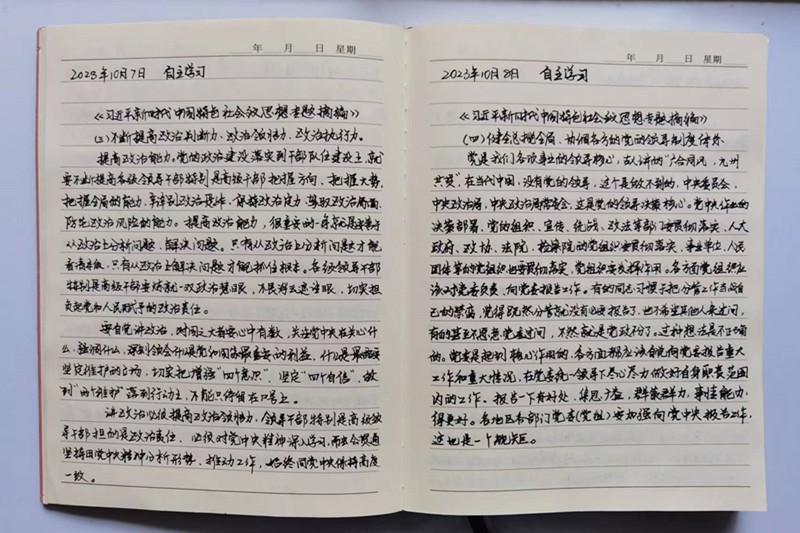 年 月 日 星期
2023年10月7日 自主学习
《习近平新时代中国特色社会主义思想专题摘编》
(三)不断提高政治判断力、政治领悟力、政治执行力。
提高政治能力。党的政治建设落实到干部队伍建设上,就
要不断提高各级领导干部特别是高级干部把握方向、把握大势、
把握全局的能力,辨别政治是非、保持政治定力、驾驭政治局面、
防范政治风险的能力。提高政治能力,很重要的一条就是要善于
从政治上分析问题、解决问题。只有从政治上分析问题才能
看清本质,只有从政治上解决问题才能抓住根本。各级领导干部
特别是高级干部要炼就一双政治慧眼,不畏浮云遮望眼,切实担
负起党和人民赋予的政治责任。
要自觉讲政治,对国之大者要心中有数,关注党中央在关心什
么、强调什么,深刻领会什么是党和国家最重要的利益、什么是最需要
坚定维护的立场,切实把增强“四个意识”、坚定“四个自信”、做
到“两个维护”落到行动上,不能只停留在口号上。
讲政治必须提高政治领悟力,领导干部特别是高级领
导干部担的是政治责任,必须对党中央精神深入学习、融会贯通
坚持用党中央精神分析形势、推动工作,始终同党中央保持高度
一致。
年 月 日 星期
2023年10月8日 自主学习
《习近平新时代中国特色社会主义思想专题摘编》
(四)健全总揽全局、协调各方的党的领导制度体系
党是我们各项事业的领导核心,古人讲的“六合同风,九州
共贯”,在当代中国,没有党的领导,这个是做不到的,中央委员会,
中央政治局,中央政治局常委会,这是党的领导决策核心。党中央作出的
决策部署,党的组织、宣传、统战、政法等部门要贯彻落实,人大
政府、政协、法院,检察院的党组织要贯彻落实,事业单位、人民
团体等的党组织也要贯彻落实,党组织要发挥作用。各方面党组织应
该对党委负责、向党委报告工作。有的同志习惯于把分管工作当成自
己的禁脔,觉得既然分管就没有必要报告了,也不希望其他人来过问,
有的甚至不愿意党委过问,不然就是党政不分了。这种想法是不正确
的。党委是起到核心作用的,各方面都应该自觉向党委报告重大
工作和重大情况,在党委统一领导下尽心尽力做好自身职责范围
内的工作。报告一下有好处,集思广益,群策群力,事情能办
得更好。各地区各部门党委(党组)要加强向党中央报告工作,
这也是一个规矩。